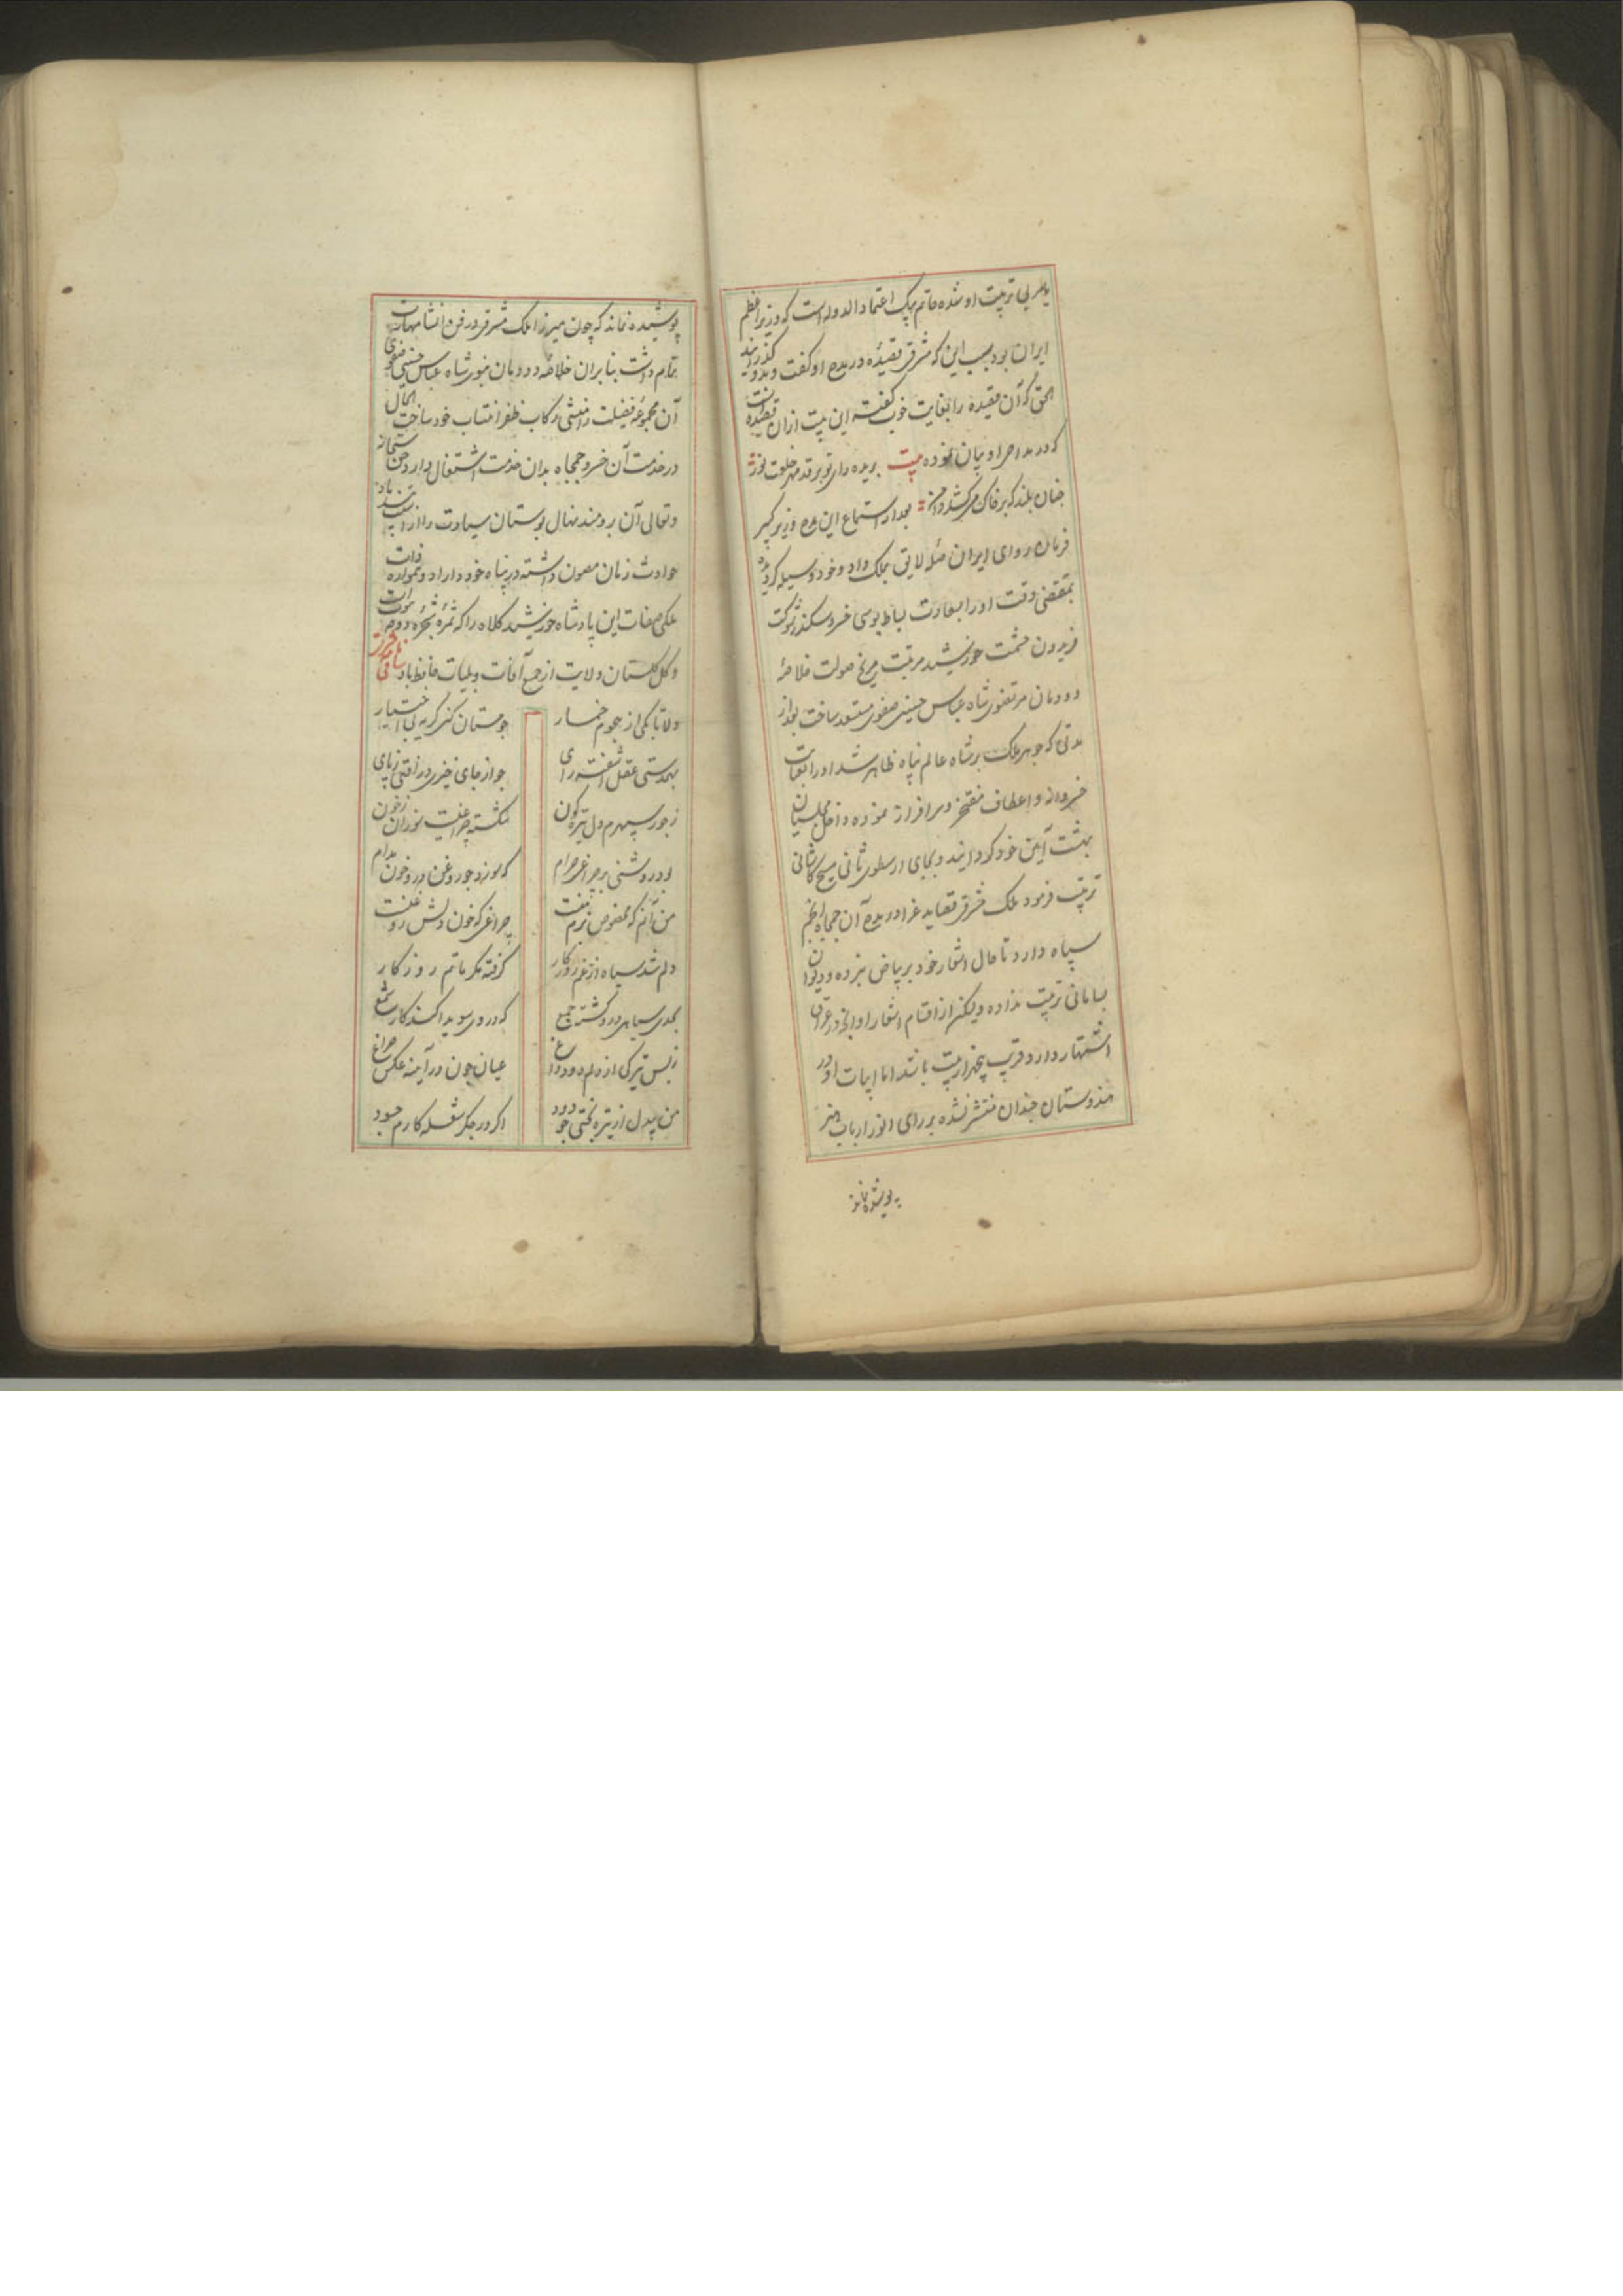 تربیت او شده حاتم بیک اعتماد الدوله است که وزیر اعظم
ایران بود بسبب این که مشرقی قصیده در مدح او گفت و بدو گذرانید
الحق که آن قصیده را بغایت خوب گفته این بیت ازان قصیده است
که در مداحی او بیان نموده بیت بریده رای تو بر قد مهر خلعت نور
چنان بلند که بر خاک میکشد دامن بعد از استماع این مدح وزیر کبیر
فرمان روای ایران صله لایق بملک داد و خود وسیله گردیده
بمقتضی وقت او را بسعادت بساط بوسی خسرو سکندر شوکت
فریدون حشمت خورشید مرتبت مریخ صولت خلاصهٔ
دودمان مرتضوی شاه عباس حسینی صفوی مستسعد ساخت بعد از
مدتی که جوهر ملک بر شاه عالم پناه ظاهر شد او را بعنایت
خسروانه و اعطاف مفتخر و سرافراز نموده داخل مجلسیان
بهشت آیین خود گردانید و بجای ارسطوی ثانی مسیح کاشانی
تربیت فرمود ملک مشرقی قصاید غرا در مدح آن جمجاه انجم
سپاه دارد تا حال اشعار خود بر بیاض نبرده و دیوان
بسامانی ترتیب نداده ولیکن از اقسام اشعار او آنچه در عراق
اشتهار دارد قریب پنجهزار بیت باشد اما ابیات او در
هندوستان چندان منتشر نشده بر رای انور ارباب هنر
پوشیده نماند
پوشیده نماند که چون میرزا ملک مشرقی در فن انشا مهارت
تمام داشت بنابران خلاصه دودمان نبوی شاه عباس حسینی صفوی
آن مجموعه فضیلت را منشی رکاب ظفر انتساب خود ساخت الحال
در خدمت آن خسرو جمجاه بدان خدمت اشتغال دارد حق سبحانه
و تعالی آن برومند نهال بوستان سیادت را از آسیب تندباد
حوادث زمان مصون داشته در پناه خود داراد و همواره ذات
ملکی صفات این پادشاه خورشید کلاه را که ثمرهٔ شجرهٔ دوحهٔ نبوت
و گل گلستان ولایت از جمیع آفات و بلیات حافظ باد ساقی نامه مشرقی
دلا تا بکی از هجوم خمار چو مستان کنی گریه بی اختیار
بهمدستی عقل آشفته رای چو از جای خیزی در افتی ز پای
ز جور سپهرم دل تیره گون شکسته چراغیست سوزان ز خون
بود روشنی بر چراغی حرام که سوزد چو روغن درو خون مدام
من آنم که مخصوص بزم منست چراغی که خون دلش روغنست
دلم شد سیاه از غم روزگار گرفته مگر ماتم روزگار
بحدی سیاهی درو گشته جمع که در وی سویدا کند کار شمع
ز بس تیرگی از دلم دود داغ عیان چون در آیینه عکس چراغ
من بیدل از تیره بختی چو دود اگر در جگر شعله کارم چه سود